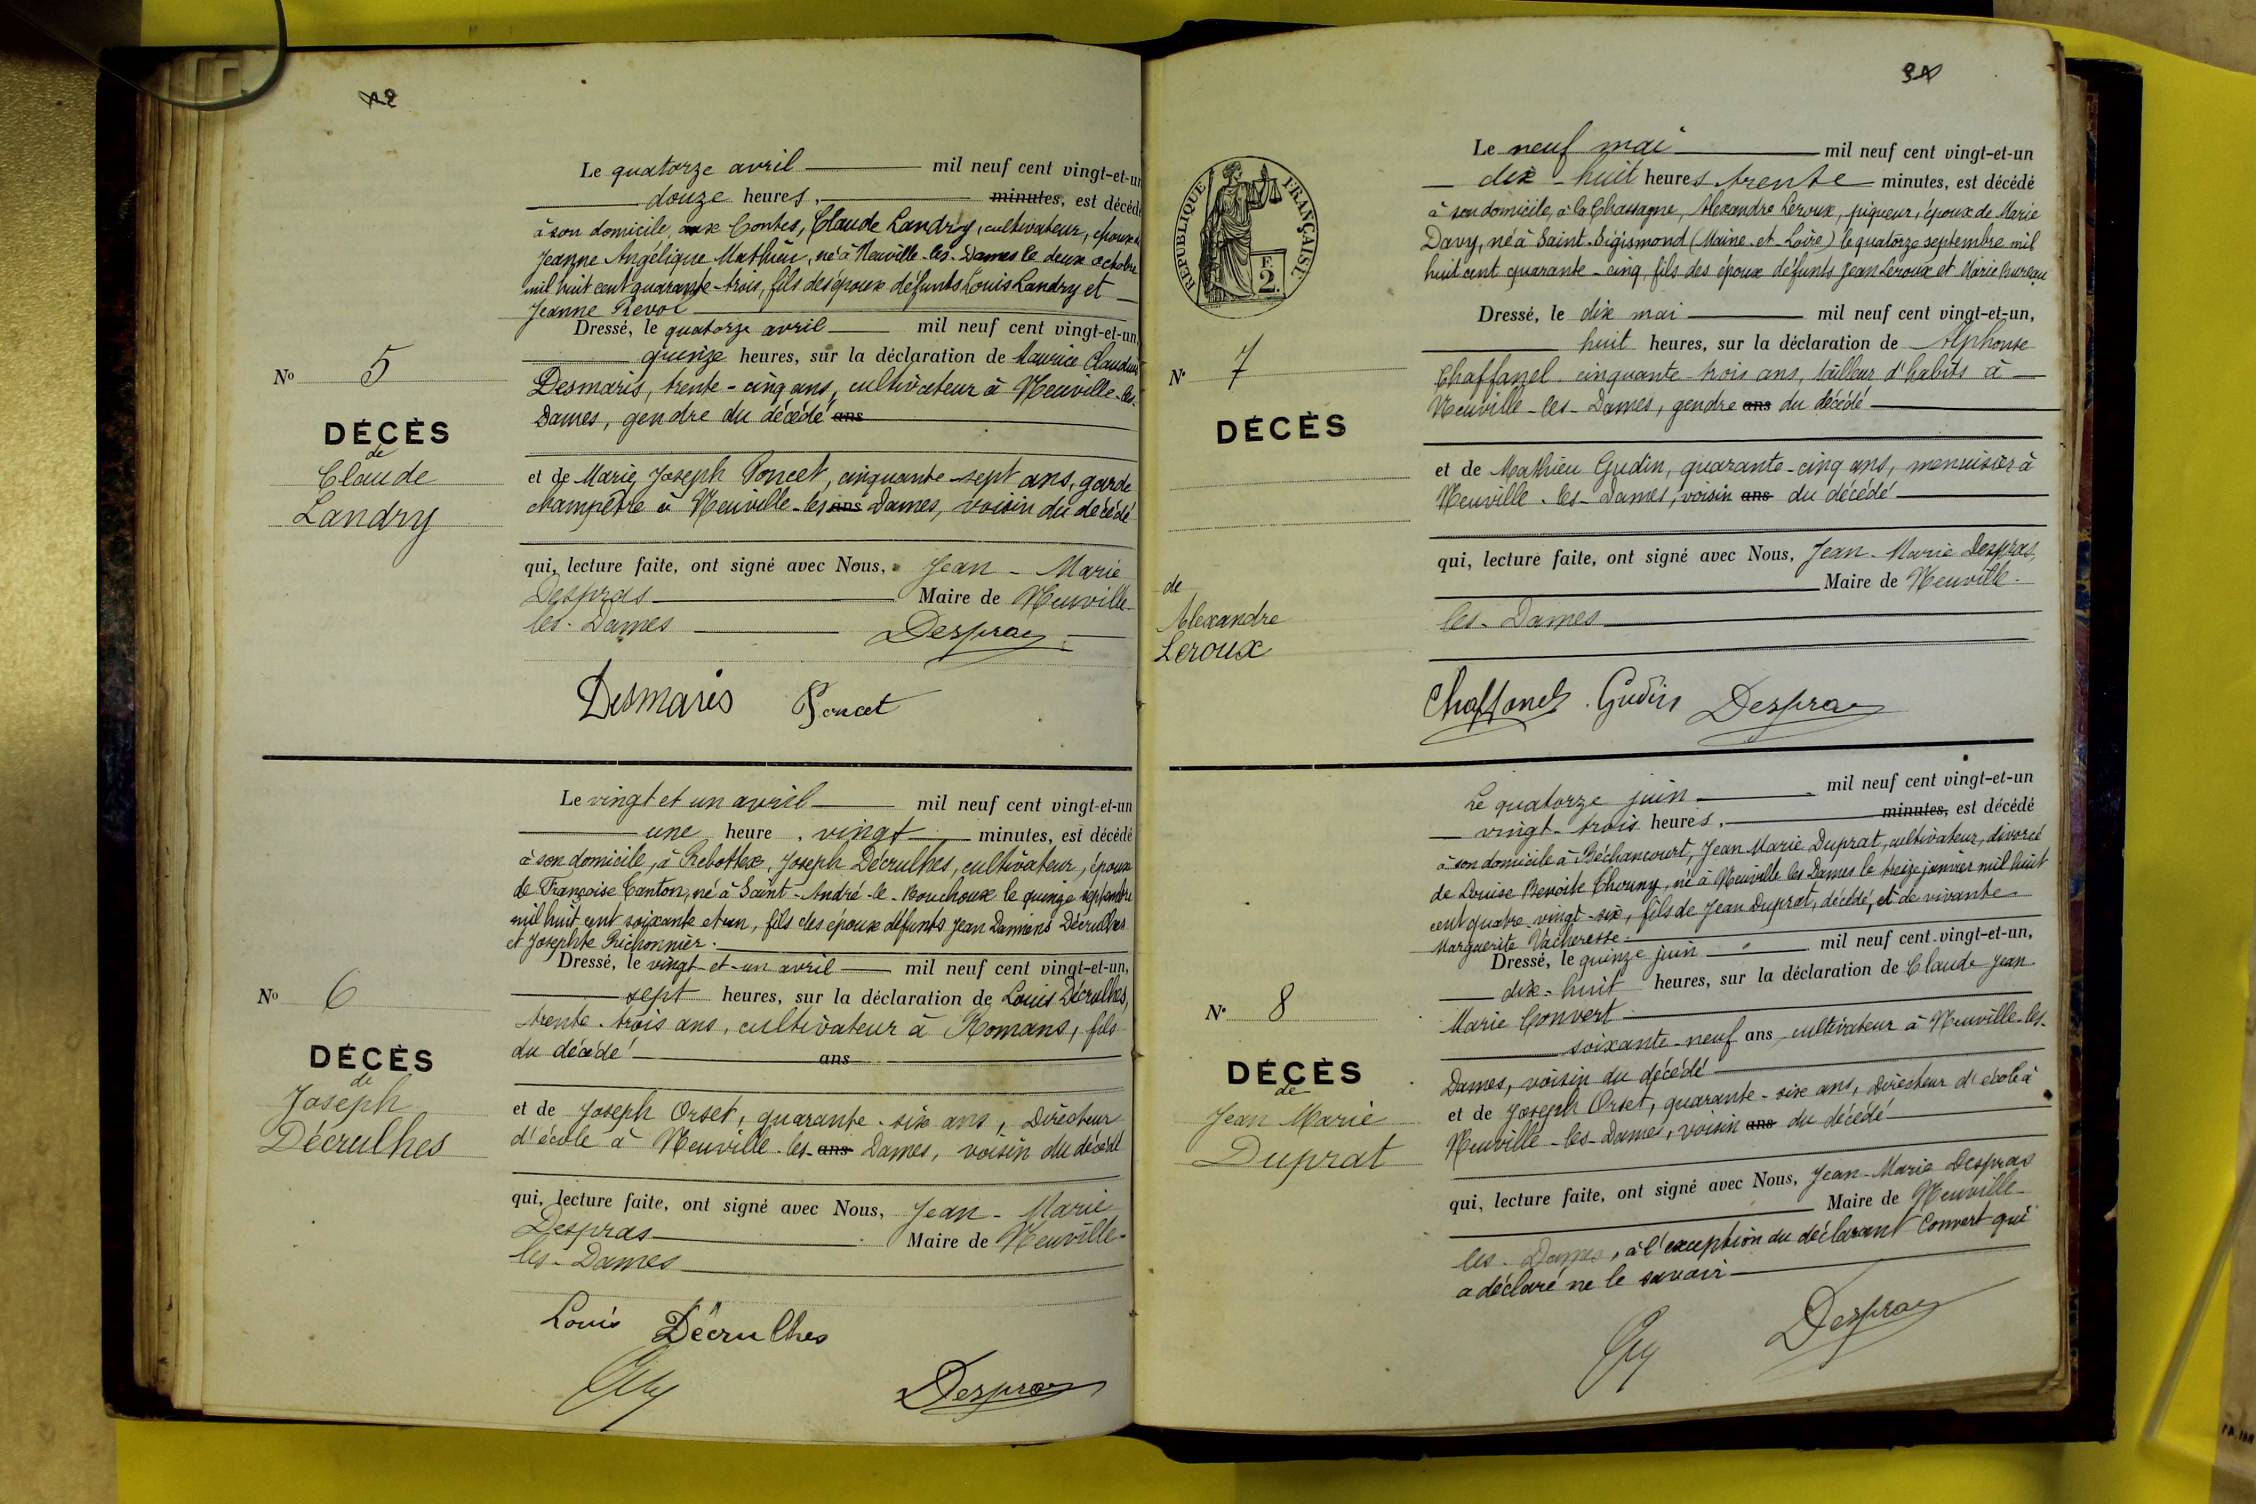 Le quatorze avril mil neuf cent vingt-et-un
douze heures, minutes, est décédé
à son domicile, aux Contes, Claude Landry, cultivateur, époux de
Jeanne Angélique Mathieu, né à Neuville-les-Dames le deux octobre
mil huit cent quarante-trois, fils des époux défunts Louis Landry et
Jeanne Revol
Dressé, le quatorze avril mil neuf cent vingt-et-un,
quinze heures, sur la déclaration de Maurice Claudius
Desmaris, trente-cinq ans, cultivateur à Neuville-les-
Dames, gendre du décédé ans
No 5
DÉCÈS
de
Claude
Landry
et de Marie Joseph Poncet, cinquante-sept ans, garde
champêtre à Neuville-les ans Dames, voisin du décédé
qui, lecture faite, ont signé avec Nous, Jean-Marie
Despras Maire de Neuville-
les-Dames Despras
Desmaris Poncet
Le vingt et un avril mil neuf cent vingt-et-un
une heure, vingt minutes, est décédé
à son domicile, à Rebottex, Joseph Décrulhes, cultivateur, époux
de Françoise Canton, né à Saint-André-le-Bouchoux le quinze septembre
mil huit cent soixante et un, fils des époux défunts Jean Damiens Décrulhes
et Josephte Prichonnier.
Dressé, le vingt-et-un avril mil neuf cent vingt-et-un,
sept heures, sur la déclaration de Louis Décrulhes,
trente-trois ans, cultivateur à Romans, fils
du décédé ans
No 6
DÉCÈS
de
Joseph
Décrulhes
et de Joseph Orset, quarante-six ans, Directeur
d'école à Neuville-les-ans Dames, voisin du décédé
qui, lecture faite, ont signé avec Nous, Jean-Marie
Despras Maire de Neuville-
les-Dames
Louis Décrulhes
Despras
RÉPUBLIQUE FRANÇAISE.
F.
2.
Le neuf mai mil neuf cent vingt-et-un
dix-huit heures trente minutes, est décédé
à son domicile, à la Chassagne, Alexandre Leroux, piqueur, époux de Marie
Davy, né à Saint-Sigismond (Maine-et-Loire) le quatorze septembre mil
huit cent quarante-cinq, fils des époux défunts Jean Leroux et Marie Bureau
Dressé, le dix mai mil neuf cent vingt-et-un,
huit heures, sur la déclaration de Alphonse
Chaffanel cinquante-trois ans, tailleur d'habits à
Neuville-les-Dames, gendre ans du décédé
No 7
DÉCÈS
de
Alexandre
Leroux
et de Mathieu Gudin, quarante-cinq ans, menuisier à
Neuville-les-Dames, voisin ans du décédé
qui, lecture faite, ont signé avec Nous, Jean-Marie Despras,
Maire de Neuville-
les-Dames
Chaffanel Gudin Despras
Le quatorze juin mil neuf cent vingt-et-un
vingt-trois heures, minutes, est décédé
à son domicile à Béchancourt, Jean Marie Duprat, cultivateur, divorcé
de Louise Benoite Chouny, né à Neuville les Dames le treize janvier mil huit
cent quatre-vingt-six, fils de Jean Duprat, décédé, et de vivante
Marguerite Vacheresse
Dressé, le quinze juin mil neuf cent vingt-et-un,
dix-huit heures, sur la déclaration de Claude Jean
Marie Convert
soixante-neuf ans cultivateur à Neuville-les-
Dames, voisin du décédé
No 8
DÉCÈS
de
Jean Marie
Duprat
et de Joseph Orset, quarante-six ans, Directeur d'école à
Neuville-les-Dames, voisin ans du décédé
qui, lecture faite, ont signé avec Nous, Jean-Marie Despras
Maire de Neuville-
les-Dames, à l'exception du déclarant Convert qui
a déclaré ne le savoir
Despras